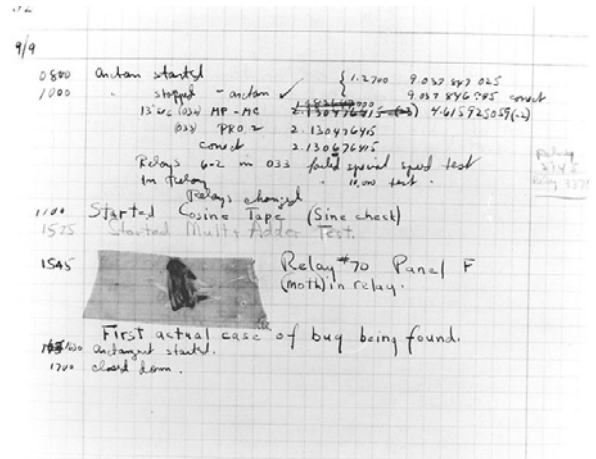 9/9
0800 Antan started
1000 " stopped - antan ✓ { 1.2700 9.037 847 025
9.037 846 795 correct
13"uc (033) MP-MC 2.130476415 (-3) 4.615925059(-2)
(033) PRO 2 2.130476415
correct 2.130676415
Relays 6-2 in 033 failed special speed test
In Relay " 10,000 test.
Relays changed
1100 Started Cosine Tape (Sine check)
1525 Started Mult+Adder Test.
1545 Relay #70 Panel F
(moth) in relay.
First actual case of bug being found.
1630 Antangent started.
1700 closed down.
Relay